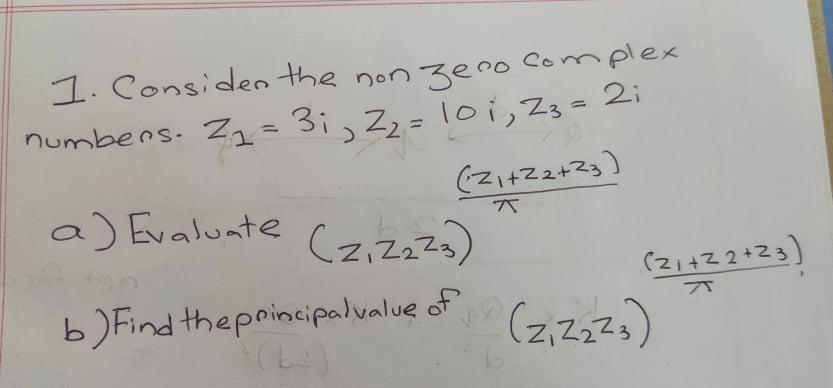 1. Consider the non zero complex
numbers. Z₁ = 3i, Z₂ = 10i, Z₃ = 2i
a) Evaluate (Z₁Z₂Z₃)^((Z₁+Z₂+Z₃)/π)
b) Find the principal value of (Z₁Z₂Z₃)^((Z₁+Z₂+Z₃)/π).